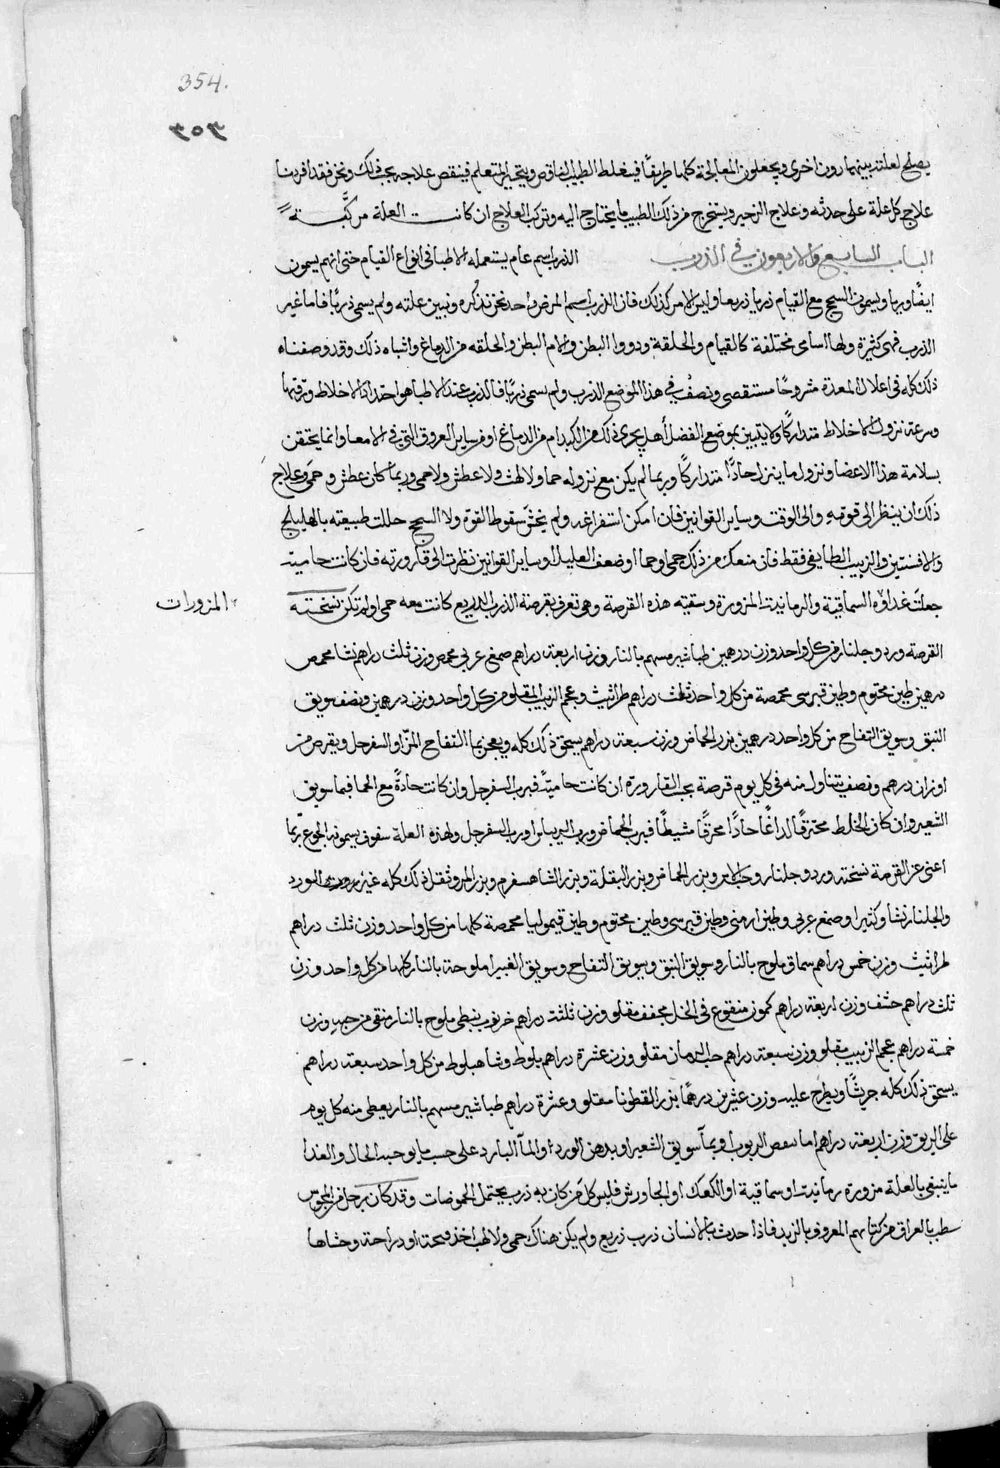 354.
٣٥٣
يصلح لعلة بينهما دون اخرى ويجعلون المعالجة كلها طريقًا فيغلط الطبيب الناقص ويتحير المتعلم فينقص علاجه يجب ذلك ونحن فقد افردنا
علاج كل علة على حدته وعلاج الزحير ويستخرج من ذلك الطبيب ما يحتاج اليه وتركب العلاج ان كانت العلة مركّبة
الباب السابع والاربعون في الذرب الذرب اسم عام يستعمله الاطبا في انواع القيام حتى انهم يسمون
ايضًا وربما يسمون السحج مع القيام ذربا ذريعا وليس الامر كذلك فان الذرب اسم المرض واحد نحن نذكره ونبين علته ولم يسمى ذربًا فاما غير
الذرب فهى كثيرة ولها اسامى مختلفة كالقيام والحلقة ودووا البطن والحلقه من الدماغ واشباه ذلك وقد وصفناه
ذلك كله فى اعلال المعدة مشروحًا مستقصى ونصف فى هذا الموضع الذرب ولم يسمى ذربًا فالذرب عند الاطبا هو احتداد الاخلاط ورقتها
وسرعة نزول الاخلاط متداركًا ولا يتبين بموضع الفضل أهل يجرى ذلك من الكبد ام من الدماغ او من ساير العروق التى فى الامعا وانما يتحقن
بسلامة هذا الاعضا ونزول ما ينزل حادًّا متداركًا وربما لم يكن مع نزوله حما ولا لهث ولا عطش ولا حمى وربما كان عطش وحمى وعلاج
ذلك ان ينظر الى قوته والى الوقت وساير القوانين فان امكن استفراغه ولم يخش سقوط القوة ولا السحج حللت طبيعته بالهليلج
والافسنتين والزبيب الطايفى فقط فان منعك من ذلك حمى او حما او ضعف العليل او ساير القوانين نظرت الى قارورته فان كانت حامية
جعلت غداوه السماقية والرمانية المزورة وسقيته هذه القرصة وهو تعرف بقرصة الذرب الذريع كانت معه حمى او لم تكن نسخته
المزورات
القرصة ورد وجلنار من كل واحد وزن درهمين طباشير مسهم بالنار وزن اربعة دراهم صمغ عربى محمص وزن ثلث دراهم نشا محمص
درهمين طين مختوم وطين قبرسى محمصة من كل واحد ثلث دراهم طراثيث وعجم الزبيب المقلو من كل واحد وزن درهمين ونصف سويق
النبق وسويق التفاح من كل واحد درهمين بزر الحماض وزن سبعة دراهم يسحق ذلك كله ويعجن بما التفاح المز او السفرجل ويقرص من
اوزان درهم ونصف يتناول منه فى كل يوم قرصة بحب القارورة ان كانت حامية فبرب السفرجل وان كانت حادةً مع الحما فبما سويق
الشعير وان كان الخلط محترقًا لداغًا حادًا محرقًا مشيطًا فبرب الحماض ورب الريباس او رب السفرجل ولهذه العلة سفوف يسمونه الجوع ربما
اغنى عن القرصة نسخته ورد وجلنار وحب الاس وبزر الحماض وبزر البقلة وبزر الشاهسفرم وبزر المرو تقلا ذلك كله غير الورد
والجلنار نشا وكثيرا وصمغ عربى وطين ارمنى وطين قبرسى وطين مختوم وطين قيموليا محمصة كلها من كل واحد وزن ثلث دراهم
طراثيث وزن خمس دراهم سماق ملوح بالنار وسويق النبق وسويق التفاح وسويق الغبيرا ملوحة بالنار كلها من كل واحد وزن
ثلث دراهم حشف وزن اربعة دراهم كمون منقوع فى الخل مجفف مقلو وزن ثلثة دراهم خرنوب نبطى ملوح بالنار منقى من حبه وزن
خمسة دراهم عجم الزبيب مقلو وزن سبعة دراهم حب الرمان مقلو وزن عشرة دراهم بلوط وشاهبلوط من كل واحد سبعة دراهم
يسحق ذلك كله جريشًا ويطرح عليه وزن عشرين درهمًا بزر القطونا مقلو وعشرة دراهم طباشير مسهم بالنار يعطى منه كل يوم
على الريق وزن اربعة دراهم اما ببعض الربوب او بما سويق الشعير او بدهن الورد او الما البارد على حسب ما يوجبه الحال والغدا
ما ينبغى بالعلة مزورة رمانية او سماقية او الكعك او الجاورش فليس كل من كان به ذرب يحتمل الحموضات وقد كان رجل من المجوس
يطب بالعراق من كتابهم المعروف بالزبد فاذا حدث بالانسان ذرب ذريع ولم يكن هناك حمى ولا لهب اخذ قبجة او دراجة وحشاها